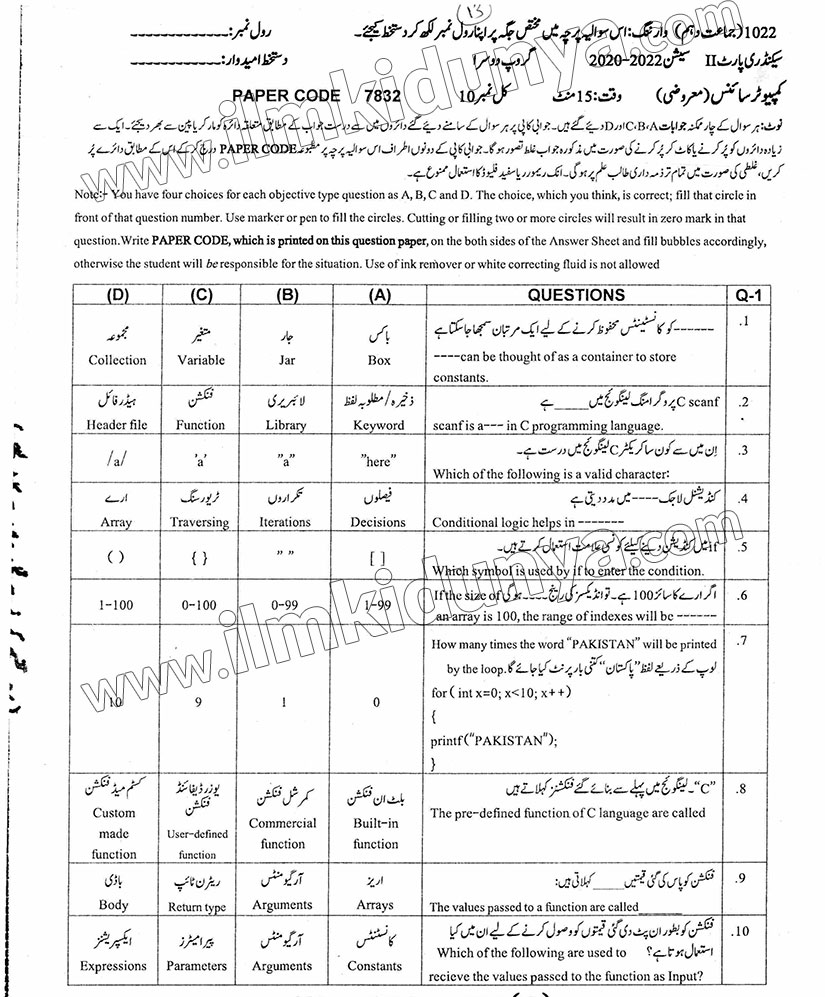 1022 (جماعت دہم) وارننگ: اس سوالیہ پرچہ میں مختص جگہ پر اپنا رول نمبر لکھ کر دستخط کیجئے۔ رول نمبر:
سیکنڈری پارٹ II سیشن 2022-2020 گروپ دوسرا دستخط امیدوار:
کمپیوٹر سائنس (معروضی) وقت: 15 منٹ کل نمبر 10 PAPER CODE 7832
نوٹ: ہر سوال کے چار ممکنہ جوابات A، B، C اور D دیئے گئے ہیں۔ جوابی کاپی پر ہر سوال کے سامنے دیئے گئے دائروں میں سے درست جواب کے مطابق متعلقہ دائرہ کو مارکر یا پین سے بھر دیجئے۔ ایک سے
زیادہ دائروں کو پُر کرنے یا کاٹ کر پُر کرنے کی صورت میں مذکورہ جواب غلط تصور ہو گا۔ جوابی کاپی کے دونوں اطراف اس سوالیہ پرچہ پر مطبوعہ PAPER CODE درج کر کے اس کے مطابق دائرے پُر
کریں، غلطی کی صورت میں تمام تر ذمہ داری طالب علم پر ہو گی۔ انک ریموور یا سفید فلیوڈ کا استعمال ممنوع ہے۔
Note:- You have four choices for each objective type question as A, B, C and D. The choice, which you think, is correct; fill that circle in
front of that question number. Use marker or pen to fill the circles. Cutting or filling two or more circles will result in zero mark in that
question.Write PAPER CODE, which is printed on this question paper, on the both sides of the Answer Sheet and fill bubbles accordingly,
otherwise the student will be responsible for the situation. Use of ink remover or white correcting fluid is not allowed
(D) (C) (B) (A) QUESTIONS Q-1
مجموعہ متغیر جار باکس ------- کو کانسٹینٹس محفوظ کرنے کے لیے ایک مرتبان سمجھا جا سکتا ہے .1
Collection Variable Jar Box ----can be thought of as a container to store
constants.
ہیڈر فائل فنکشن لائبریری ذخیرہ/مطلوبہ لفظ C scanf پروگرامنگ لینگوئج میں _____ ہے .2
Header file Function Library Keyword scanf is a--- in C programming language.
/a/ 'a' "a" "here" اِن میں سے کون سا کریکٹر C لینگوئج میں درست ہے۔ .3
Which of the following is a valid character:
ارے ٹریورسنگ تکراروں فیصلوں کنڈیشنل لاجک ---- میں مدد دیتی ہے .4
Array Traversing Iterations Decisions Conditional logic helps in -------
( ) { } " " [ ] if میں کنڈیشن دینے کیلئے کونسی علامت استعمال کرتے ہیں۔ .5
Which symbol is used by if to enter the condition.
1-100 0-100 0-99 1-99 اگر ارے کا سائز 100 ہے۔ تو انڈیکسز کی رینج ---- ہو گی If the size of .6
an array is 100, the range of indexes will be -------
10 9 1 0 How many times the word "PAKISTAN" will be printed .7
لوپ کے ذریعے لفظ "پاکستان" کتنی بار پرنٹ کیا جائے گا۔ by the loop.
for ( int x=0; x<10; x++)
{
printf("PAKISTAN");
}
کسٹم میڈ فنکشن یوزر ڈیفائنڈ فنکشن کمرشل فنکشن بلٹ ان فنکشن "C"۔ لینگوئج میں پہلے سے بنائے گئے فنکشنز کہلاتے ہیں .8
Custom made function User-defined function Commercial function Built-in function The pre-defined function of C language are called
باڈی ریٹرن ٹائپ آرگیومنٹس اریز فنکشن کو پاس کی گئی قیمتیں _____ کہلاتی ہیں: .9
Body Return type Arguments Arrays The values passed to a function are called______
ایکسپریشنز پیرامیٹرز آرگیومنٹس کانسٹنٹس فنکشن کو بطور ان پٹ دی گئی قیمتوں کو وصول کرنے کے لیے ان میں کیا .10
استعمال ہوتا ہے؟ Which of the following are used to
Expressions Parameters Arguments Constants recieve the values passed to the function as Input?
www.ilmkidunya.com
www.ilmkidunya.com
www.ilmkidunya.com